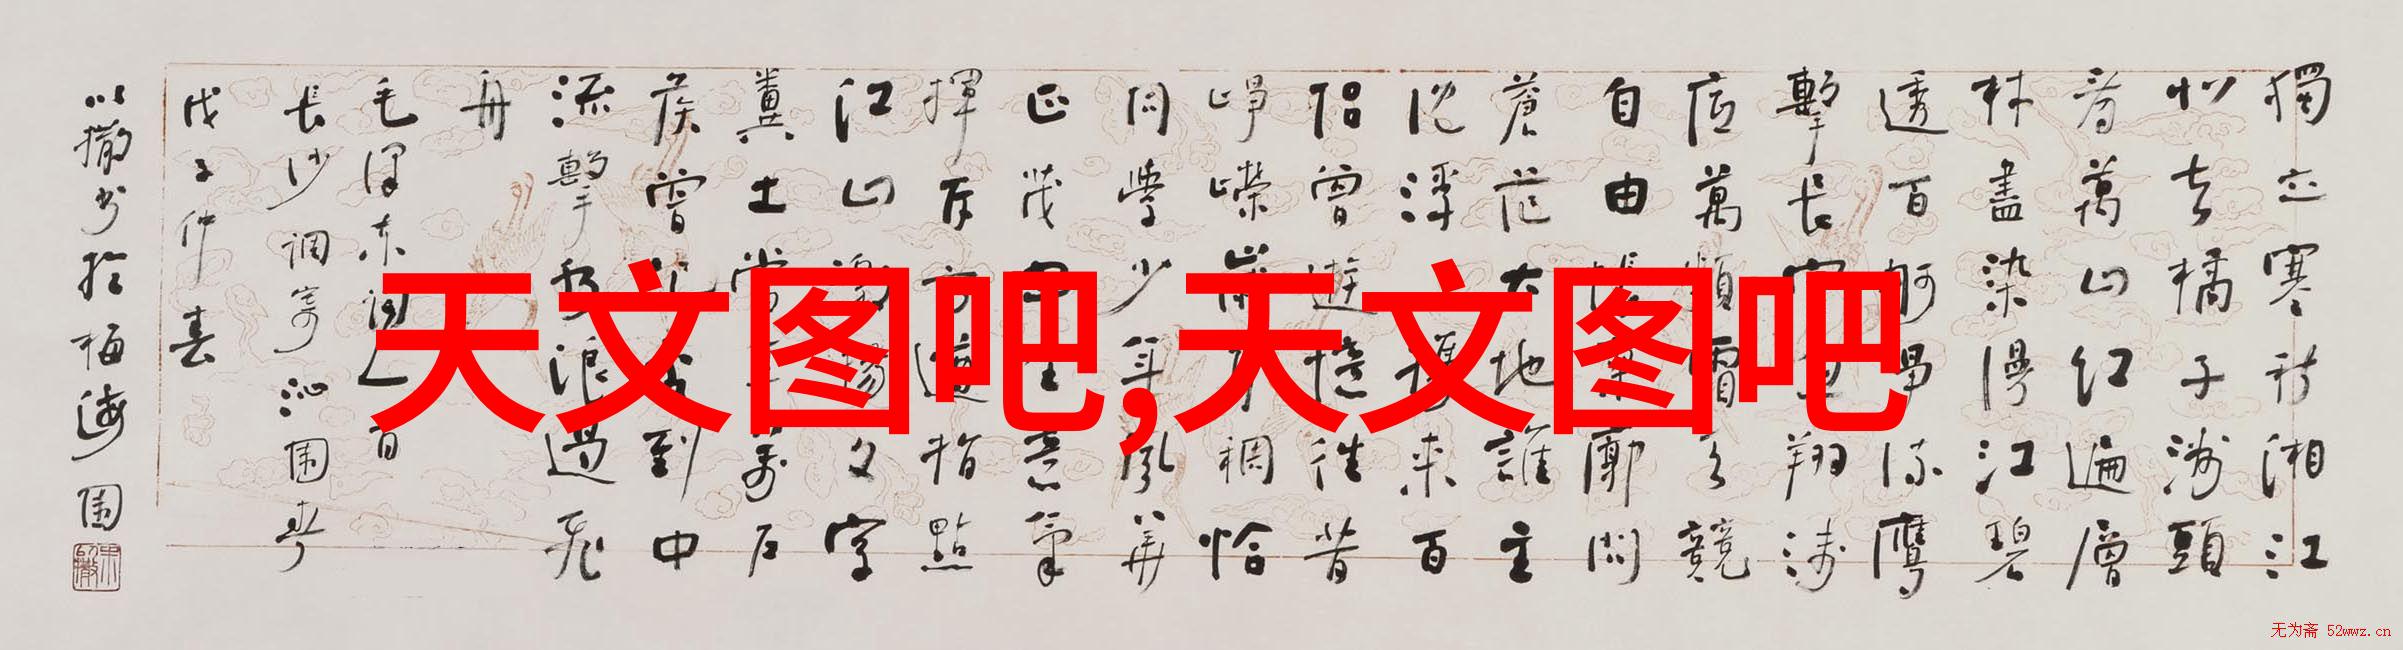 獨立寒秋湘江
北去橘子洲頭
看萬山紅遍層
林盡染漫江碧
透百舸爭流鷹
擊長空魚翔淺
底萬類霜天競
自由悵寥廓問
蒼茫大地誰主
沈浮攜來百
侶曾遊憶往昔
崢嶸歲月稠恰
同學少年風華
正茂書生意氣
揮斥方遒指點
江山激揚文字
糞土當年萬戶
侯曾記否到中
流擊水浪遏飛
舟
毛澤東詞一首
長沙調寄沁園春
戊子仲春
書於梅海園
天文图吧,天文图吧
无为斋 52wwz.cn